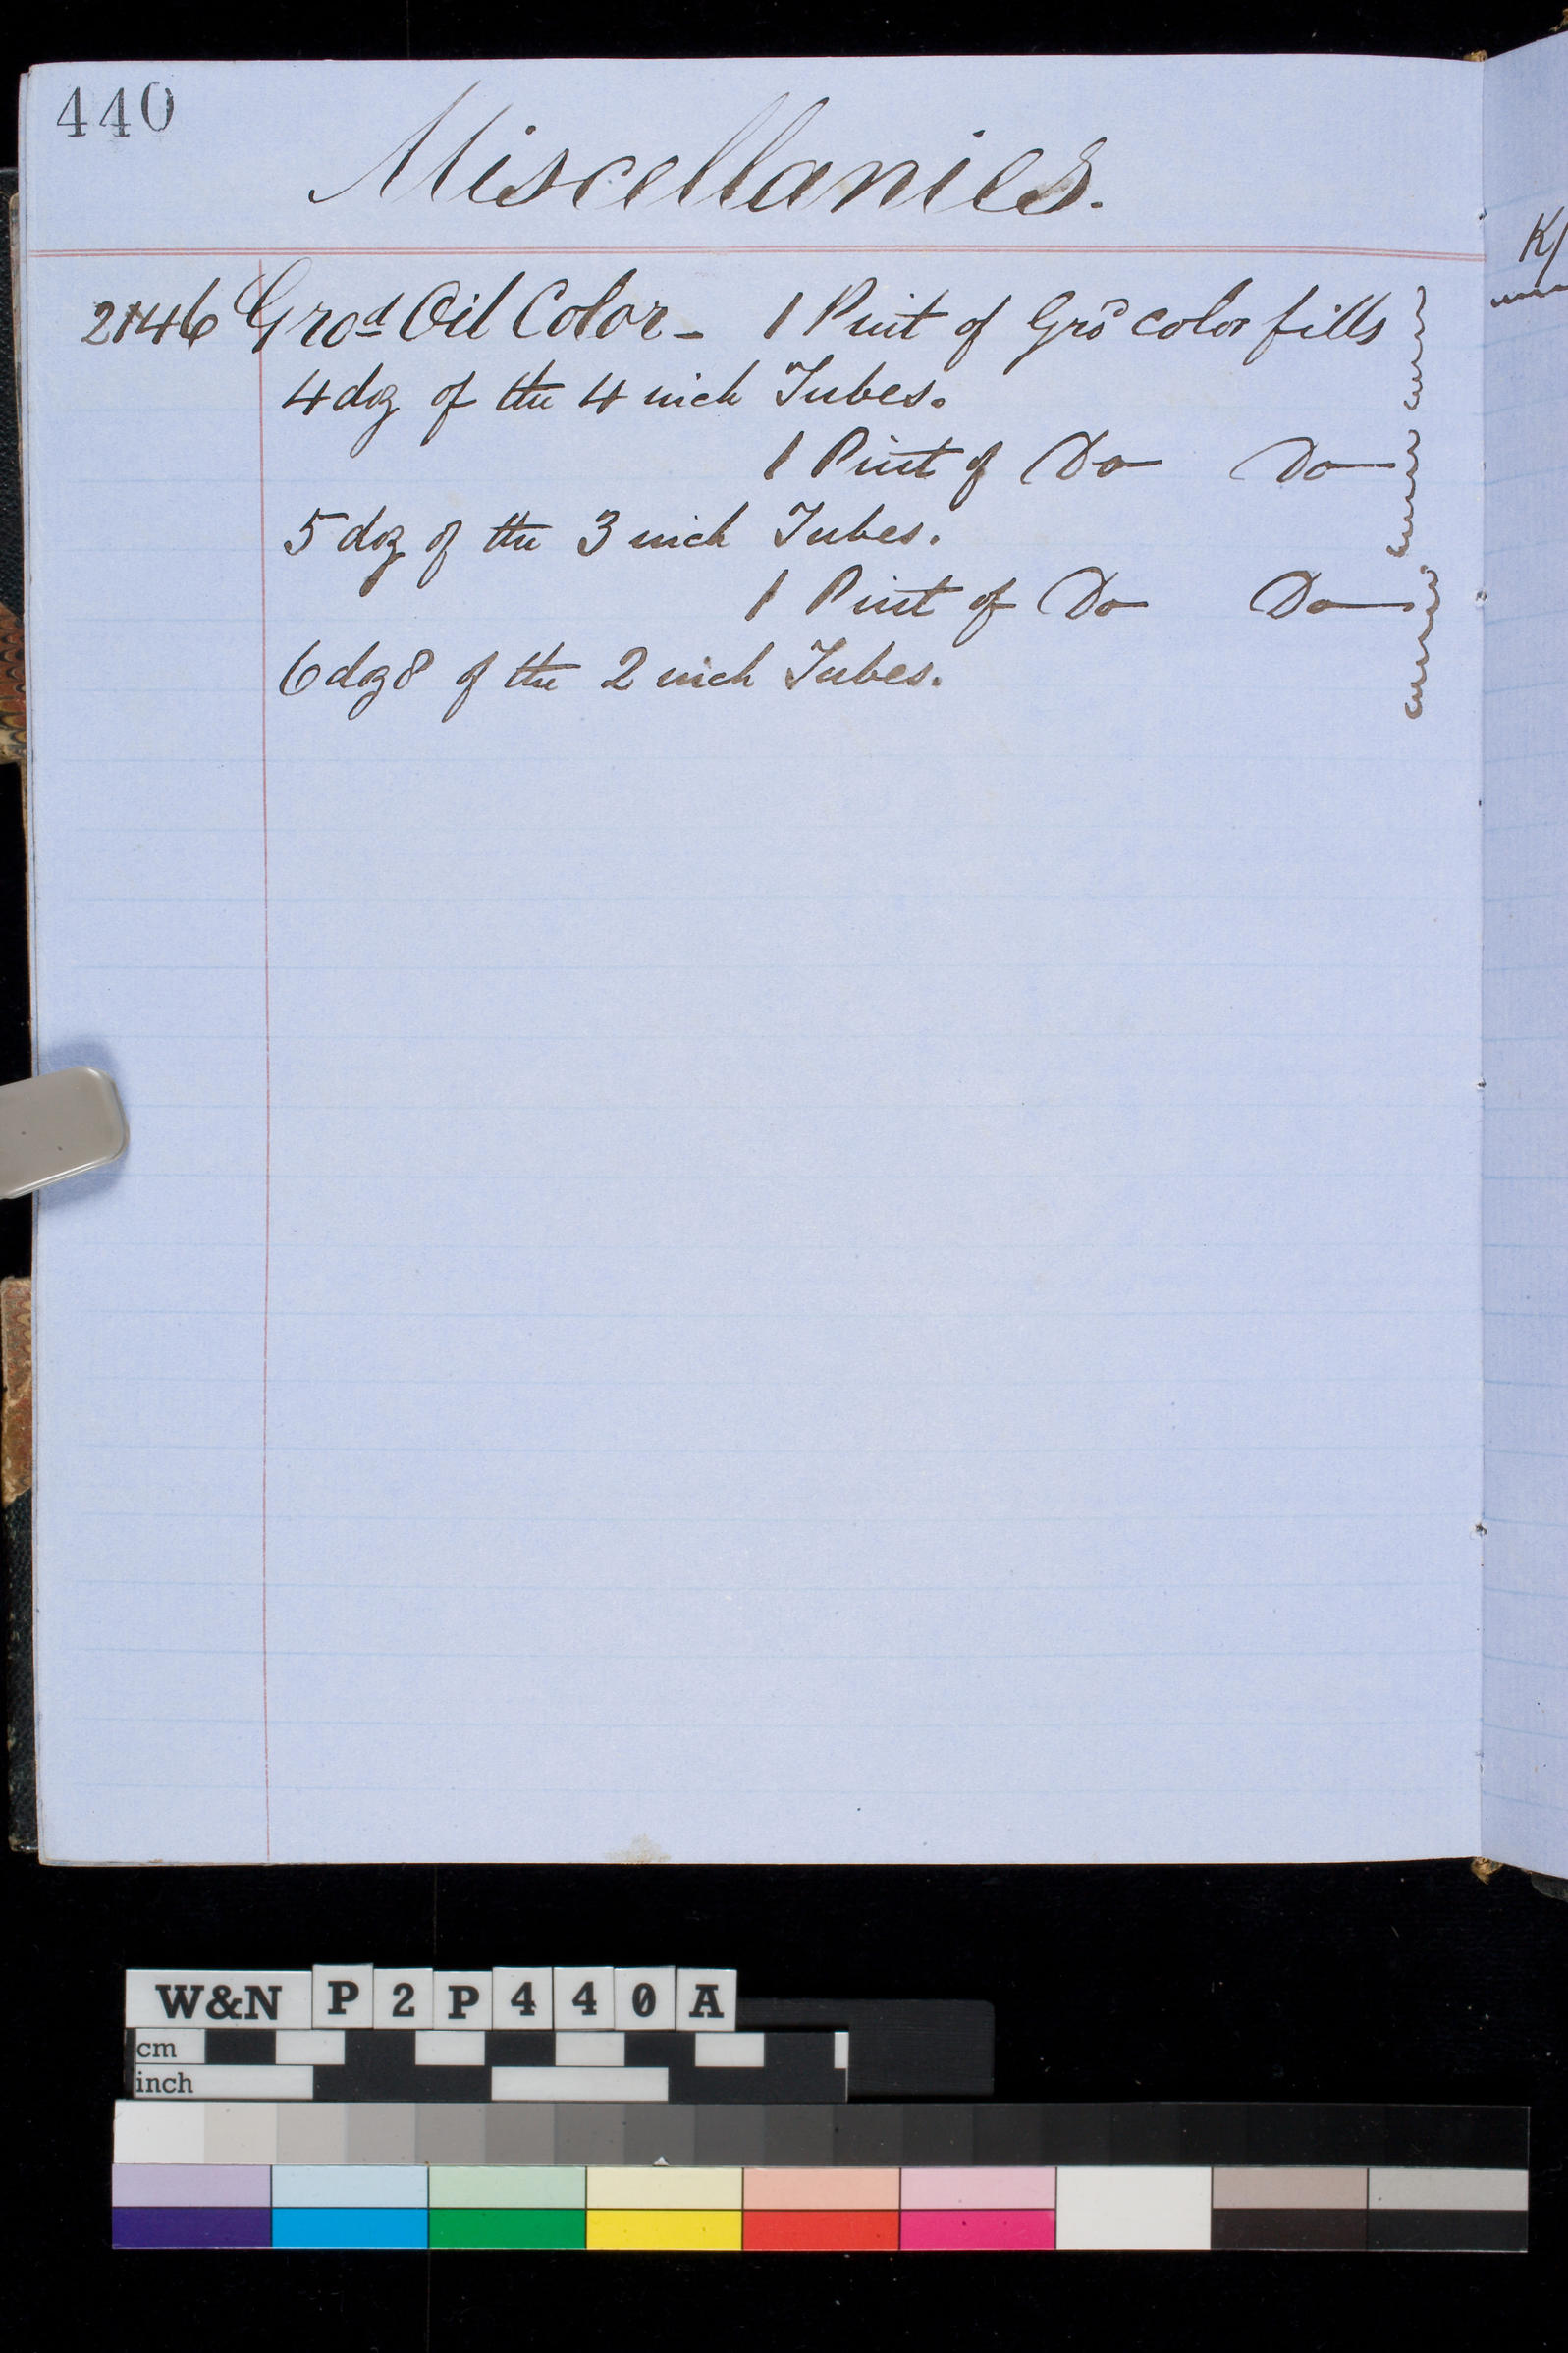 440
Miscellanies.
2146 Gro.d Oil Color - 1 Pint of Gro.d color fills
4 doz of the 4 inch Tubes.
1 Pint of Do Do
5 doz of the 3 inch Tubes.
1 Pint of Do Do
6 doz 8 of the 2 inch Tubes.
K/
W&N P2P440A
cm
inch